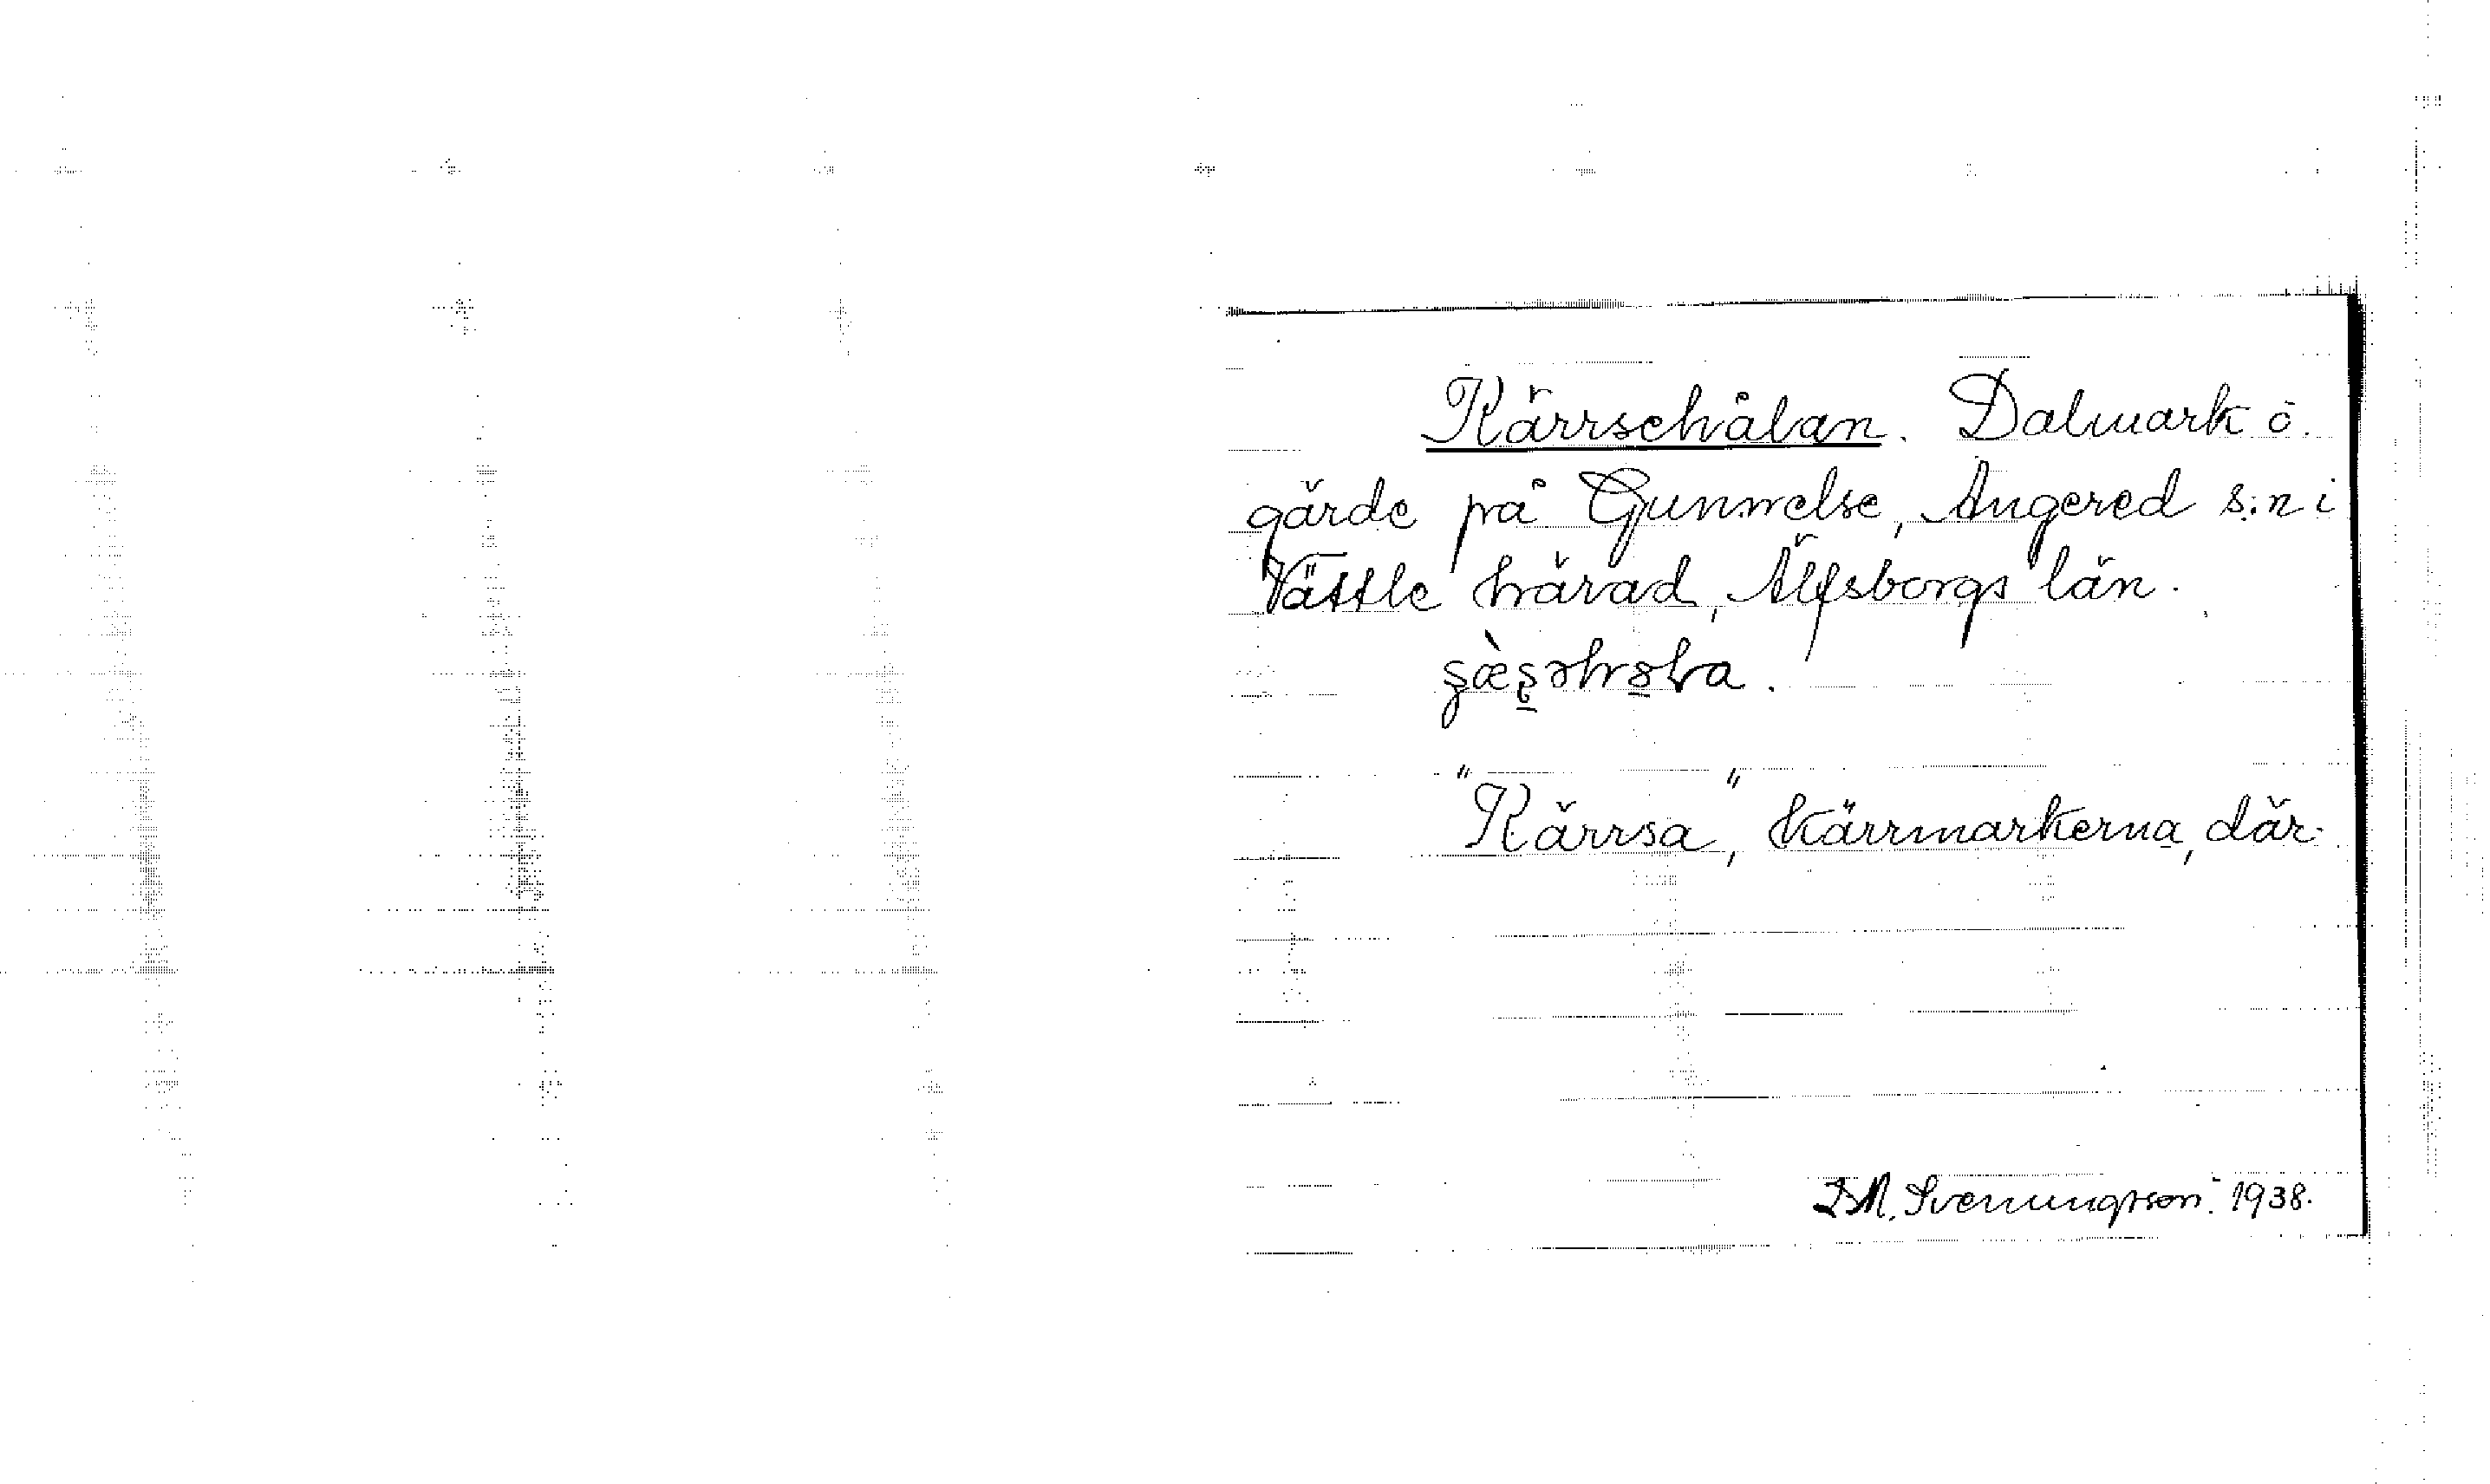 Kärrsehålan. Dalmark ö.
gärde på Gunnelse, Angered s:n i
Vättle härad, Älfsborgs län.
"Kärrsa", kärrmarkerna, där.
D.M. Svenungsson. 1938.